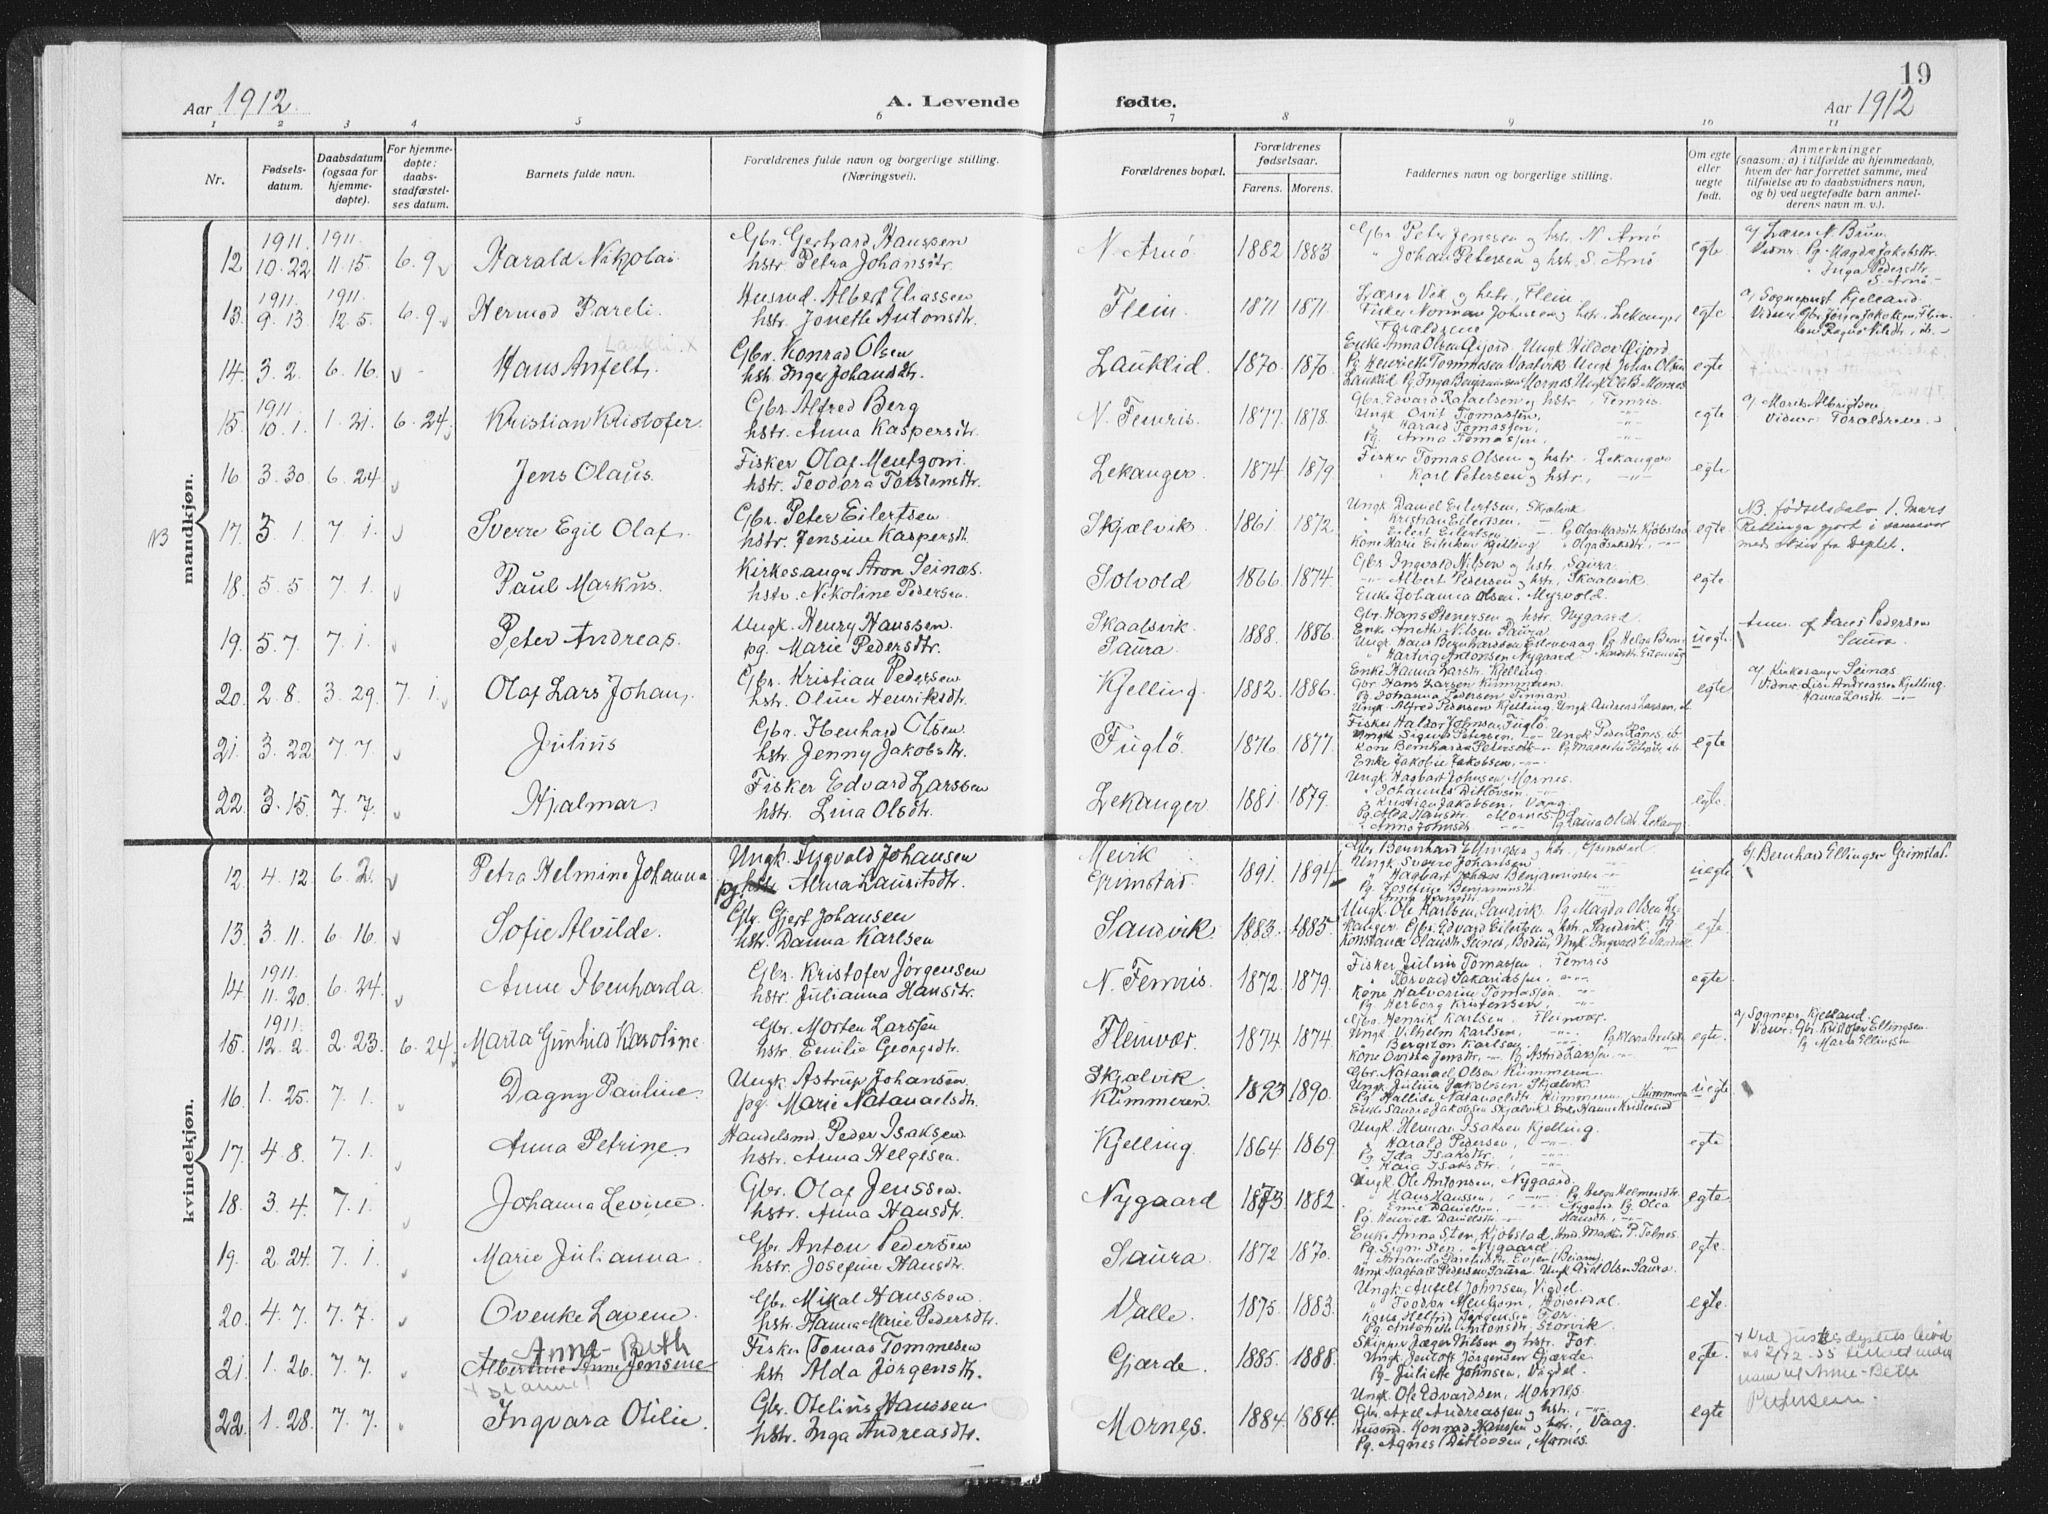 19
Aar 1912.
A. Levende
fødte.
Aar 1912
1 2 3 4 5 6 7 8 9 10 11
Nr.
Fødsels-
datum.
Daabsdatum
(ogsaa for
hjemme-
døpte).
For hjemme-
døpte:
daabs-
stadfæstel-
ses datum.
Barnets fulde navn.
Forældrenes fulde navn og borgerlige stilling.
(Næringsvei).
Forældrenes bopæl.
Forældrenes
fødselsaar.
Farens. Morens.
Faddernes navn og borgerlige stilling.
Om egte
eller
uegte
født.
Anmerkninger
(saasom: a) i tilfælde av hjemmedaab,
hvem der har forrettet samme, med
tilføielse av to daabsvidners navn,
og b) ved uegtefødte barn anmel-
derens navn m. v.).
mandkjøn.
12 1911. 10.22 1911. 11.15 6.9 Harald Nikolai
Gbr. Gerhard Hanssen
hstr. Petra Johansdtr.
N. Arnö 1882 1883
Gbr. Peter Jenssen og hstr. N. Arnö
" Johan Petersen og hstr. S. Arnö
egte
a/ Lærer N. Bruun
Vidner: Pg. Magda Jakobsdtr.
" Inga Pedersdtr.
S. Arnö
13. 1911. 9.13 1911. 12.5. 6.9 Hermod Pareli.
Husmd. Albert Eliassen
hstr. Joneth Antonsdtr.
Flein 1871 1871.
Lærer Vik og hstr., Flein
Fisker Norman Johnsen og hstr. Lekanger
Forældrene
egte
a/ Sogneprest Kjelland.
14. 3.2. 6.16. Hans Anfelt.
Gbr. Konrad Olsen
hstr. Inger Johansdtr.
Lauklid. 1870. 1870.
Enke Anna Olsen Øijord. Ungk. Hildor Øijord
Pg. Henriette Tommesen Vaatvik. Ungk. Johan Olsen
Lauklid. Pg. Inga Benjaminsen Mornes. Ungk. Ol. B. Mornes
egte
15. 1911 10.1. 1.21. 6.24. Kristian Kristofer.
Gbr. Alfred Berg
hstr. Anna Kaspersdtr.
N. Femris. 1877. 1878.
Gbr. Edvard Rafaelsen og hstr. Femris.
Ungk. Ovit Tomassen,
" Harald Tomassen,
Pg. Anna Tomassen,
egte
a/ Marie Albrigtsen
Vidner: Foræeldrene.
16 3.30. 6.24. Jens Olaus.
Fisker Olaf Mentzoni.
hstr. Teodora Torstensdtr.
Lekanger. 1874 1879
Fisker Tomas Olsen og hstr. Lekanger
" Karl Petersen og hstr.,
egte
NB 17. 3.1. 7.1. Sverre Egil Olaf.
Gbr. Peter Eilertsen
hstr. Jensine Kaspersdtr.
Skjælvik. 1861. 1872.
Ungk. Daniel Eilertsen, Skjælvik
" Kristian Eilertsen.
" Eilert Eilertsen Pg. Olga Madsdtr. Kjöbstad
Kone Marie Eilertsen Kjelling " Olga Isaksdtr.
egte
NB. fødselsdato 1. mars
Rettinga gjort i samsvar
med skriv fra Deptet.
18. 5.5 7.1. Paul Markus.
Kirkesanger Aron Seines.
hstr. Nikoline Pedersen.
Solvold 1866. 1874.
Gbr. Ingvald Nilsen og hstr. Saura.
" Albert Pedersen og hstr. Skaalsvik.
Enke Johanna Olsen. Myrvold.
egte.
19. 5.7. 7.1. Peter Andreas.
Ungk. Henry Hanssen.
pg. Marie Pedersdtr.
Skaalsvik.
Saura. 1888. 1886.
Gbr. Hans Stenersen hstr. Nygaard.
Enke Aneth. Nilsen Saura
" Hartvig Antonsen Nygaard
uegte
Anm. af Hans Pedersen
Saura.
20. 2.8. 3.29. 7.1. Olaf Lars Johan.
Gbr. Kristian Pedersen
hstr. Oline Henriksdtr.
Kjelling 1882. 1886.
Enke Hanna Larsdtr. Kjelling.
Gbr. Hans Larsen Kummeren.
Pg. Johanna Pedersen Finnan.
Ungk. Alfred Pedersen Kjelling. Ungk. Andreas Larsen, ib.
egte
a/ Kirkesanger Seines.
Vidner: Lise Andreassen Kjelling.
Hanna Larsdtr.
21. 3.22 7.7. Julius
Gbr. Ibenhard Olsen.
hstr. Jenny Jakobsdtr.
Fuglö. 1876. 1877.
Fisker Haldor Johnsen, Fuglö
Ungk. Sigurd Petersen. Ungk. Peder Hanes. ib.
Kone Bernharda Petersdtr.
Enke Jakobie Jakobsen.
egte
22. 3.15. 7.7. Hjalmar.
Fisker Edvard Larssen
hstr. Lina Olsdtr.
Lekanger 1881. 1879.
Ungk. Hagbart Johnsen, Mornes.
" Johannes Ditlovsen.
" Kristian Jakobsen, Vaag.
Pg. Alda Hansdtr. Mornes. Pg. Laura Olsdtr. Lekang.
" Anna Johnsdtr.
egte.
kvindekjøn.
12. 4.12 6.2. Petra Helmine Johanna
Ungk. Ingvald Johansen
pg. hstr. Alma Lauritsdtr.
Mevik
Grimstad. 1891. 1894
Gbr. Bernhard Ellingsen og hstr. Grimstad.
Ungk. Sverre Johansen
" Hagbart Benjaminsen
Pg. Josefine Benjaminsdtr.
uegte
b. Bernhard Ellingsen Grimstad.
13. 3.11. 6.16. Sofie Alvilde.
Gbr. Gjert Johansen
hstr. Danna Karlsen
Sandvik. 1883. 1885.
Ungk. Ole Karlsen, Sandvik. Pg. Magda Olsen Le-
kanger. Gbr. Edvard Eilertsen og hstr. Sandvik. Pg.
Konstance Olausdtr. Seines, Bodin, Ungk. Ingvald E. Sandvik.
egte.
14 1911. 11.20. 6.24. Anne Ibenharda.
Gbr. Kristofer Jörgensen
hstr. Julianna Hansdtr.
N. Femris. 1872. 1879.
Fisker Julius Tomassen. Femris
" Torvald Sakariassen,
Kone Halvorine Tomassen
Pg. Herborg Kristensen,
egte.
15. 1911. 12.2. 2.23. 6.24. Marta Gunhild Karoline.
Gbr. Morten Larssen
hstr. Emilie Georgsdtr.
Fleinvær. 1874 1874.
Gbr. Henrik Karlsen. Fleinvær.
Ungk. Vilhelm Karlsen,
" Bergiton Karlsen,
Kone Ovidia Jensdtr. Pg. Astrid Larssen
egte.
a/ Sognepr. Kjelland.
Vidner: Gbr. Kristofer Ellingsen.
Pg. Maria Ellingsen
16. 1.25. 7.1. Dagny Pauline.
Ungk. Astrup Johansen.
pg. Marie Natanaelsdtr.
Skjælvik
Kummeren. 1893 1890.
Gbr. Natanael Olsen Kummeren.
Ungk. Julius Jakobsen Skjælvik
Pg. Hallida Natanaelsdtr. Kummeren.
uegte
17. 4.8. 7.1. Anna Petrine.
Handelsmd. Peder Isaksen
hstr. Anna Helgesen.
Kjelling. 1864 1869.
Ungk. Herman Isaksen Kjelling.
" Harald Pedersen,
Pg. Ida Isaksdtr.
" Kaia Isaksdtr.
egte
18. 3.4. 7.1. Johanna Levine.
Gbr. Olaf Jenssen.
hstr. Anna Hansdtr.
Nygaard 1873 1882.
Ungk. Ole Antonsen, Nygaard.
" Hans Hanssen, Pg. Helga Helmersdtr.
" Enne Danielsen Nygaard. Pg. Olea
Pg. Henriette Danielsdtr. Hansdtr.
egte
19. 2.24. 7.1. Marie Julianna.
Gbr. Anton Pedersen
hstr. Josefine Hansdtr.
Saura. 1872 1870.
Enke Anna Sten, Kjöbstad. Hnd. Markus P. Tolnes.
Pg. Signe Sten. Nygaard.
Ungk. Hagbart Pedersen Saura. Ungk. Axel Olsen Saura.
egte.
20. 4.7. 7.7. Ovenke Lavene.
Gbr. Mikal Hanssen.
hstr. Hanna Marie Pedersdtr.
Valle. 1875. 1883.
Ungk. Anfelt Johnsen, Vigdel.
" Teodor Mentzoni, Horsdal.
Kone Helfrid Jörgensen For.
Pg. Antoneth Antonsdtr. Storvik.
egte.
21. 1.26. 7.7. Albertine Anne Jensine
Anne-Beth
Fisker Tomas Tommesen
hstr. Alda Jörgensdtr.
Gjærde. 1885. 1888.
Skipper Jæger Nilsen og hstr. For.
Ungk. Jentoft Jörgensen Gjærde.
Pg. Juliette Johnsen, Vigdel.
egte.
+ Ved Just.dep.tets brev
av 2/12 55 tillatt endre
navn til Anne-Beth
Pedersen.
22. 1.28. 7.7. Ingvara Otilie.
Gbr. Otelius Hanssen
hstr. Inga Andreasdtr.
Mornes. 1884. 1884.
Ungk. Ole Edvardsen, Mornes.
Gbr. Axel Andreassen og hstr.,
Husmd. Konrad Hanssen og hstr., Vaag.
Pg. Agnes Ditlovsen, Mornes.
egte